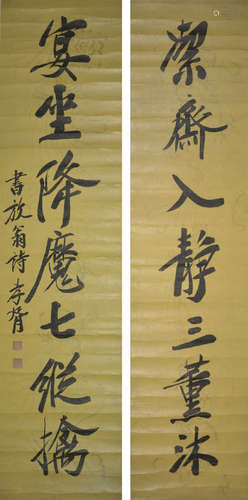 絜齋入靜三薰沐
宴坐降魔七縱擒
書放翁詩 李